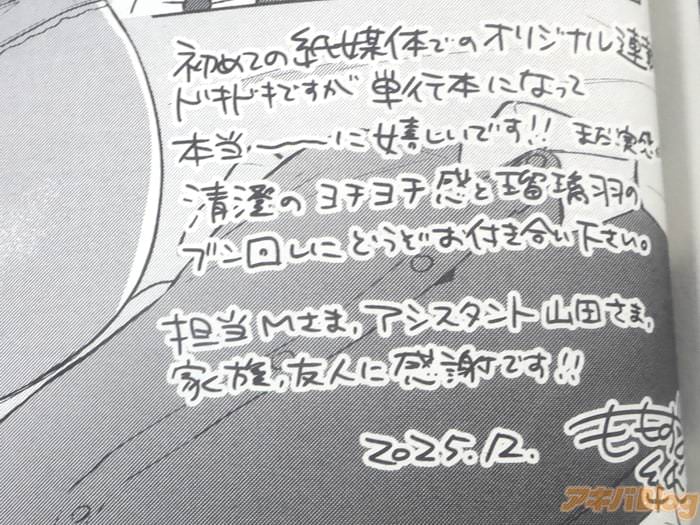 初めての紙媒体でのオリジナル連載
ドキドキですが 単行本になって
本当〜〜に嬉しいです!! まだ実感
清澄のヨチヨチ感と瑠璃羽の
ブン回しにどうぞお付き合い下さい。
担当Mさま,アシスタント山田さま,
家族,友人に感謝です!!
2025.12.
アキバBlog